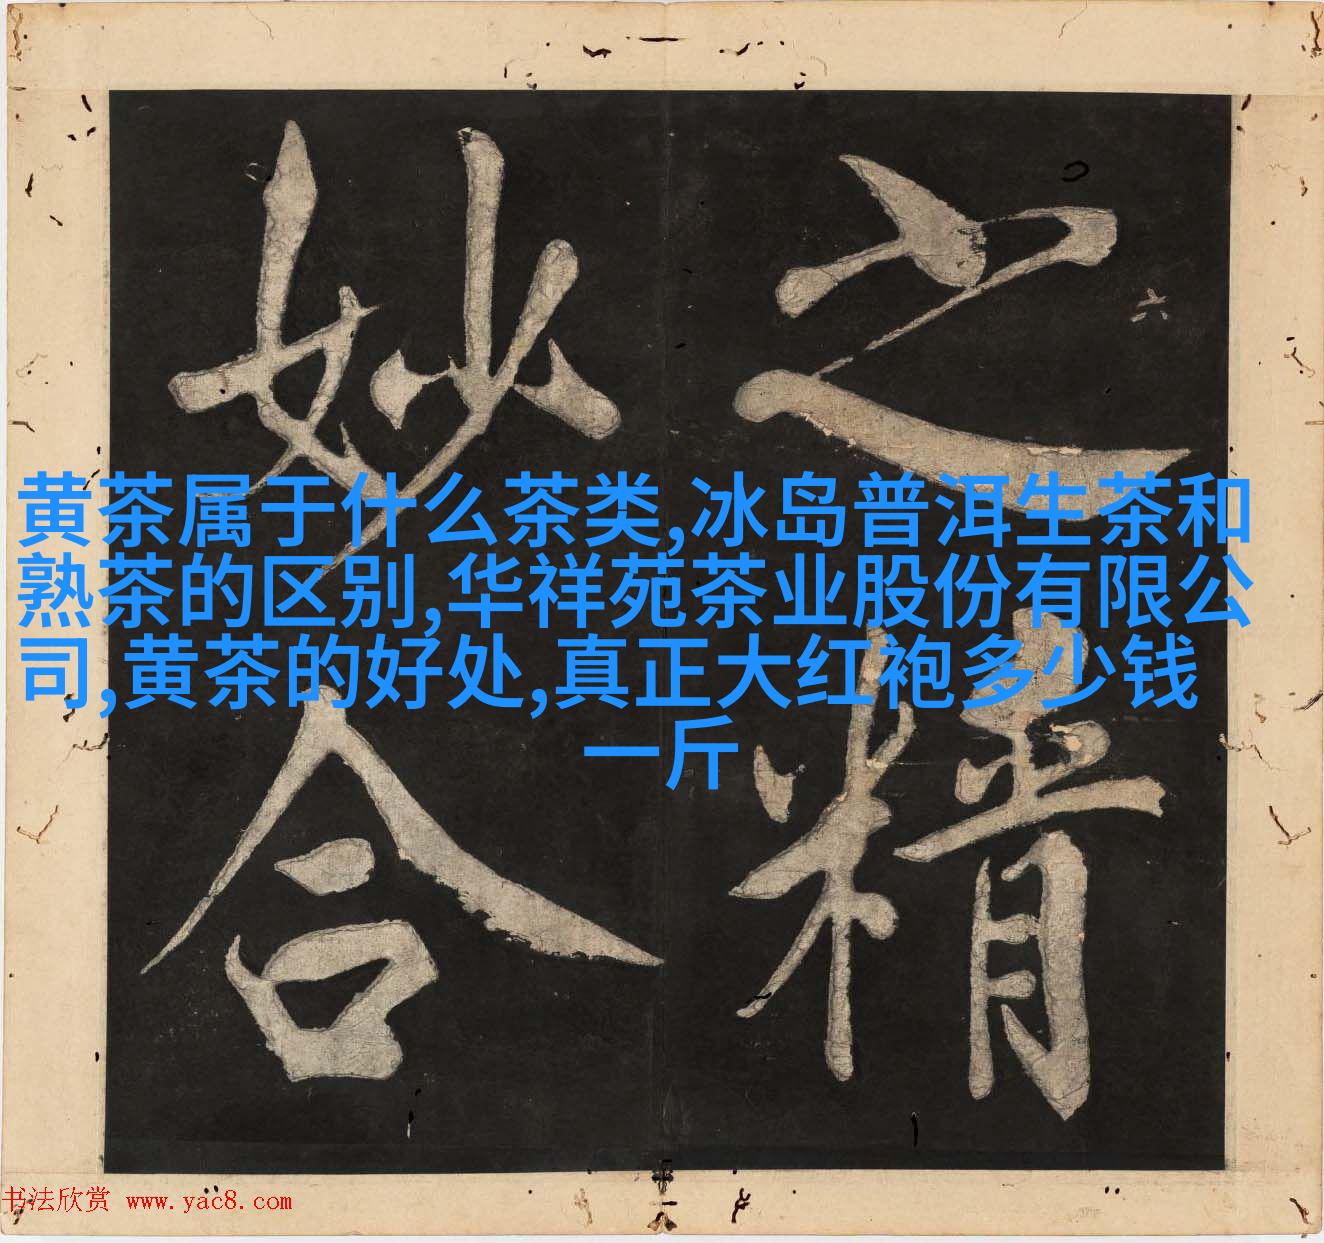 之精
妙合
六
黄茶属于什么茶类,冰岛普洱生茶和
熟茶的区别,华祥苑茶业股份有限公
司,黄茶的好处,真正大红袍多少钱
一斤
书法欣赏 www.yac8.com